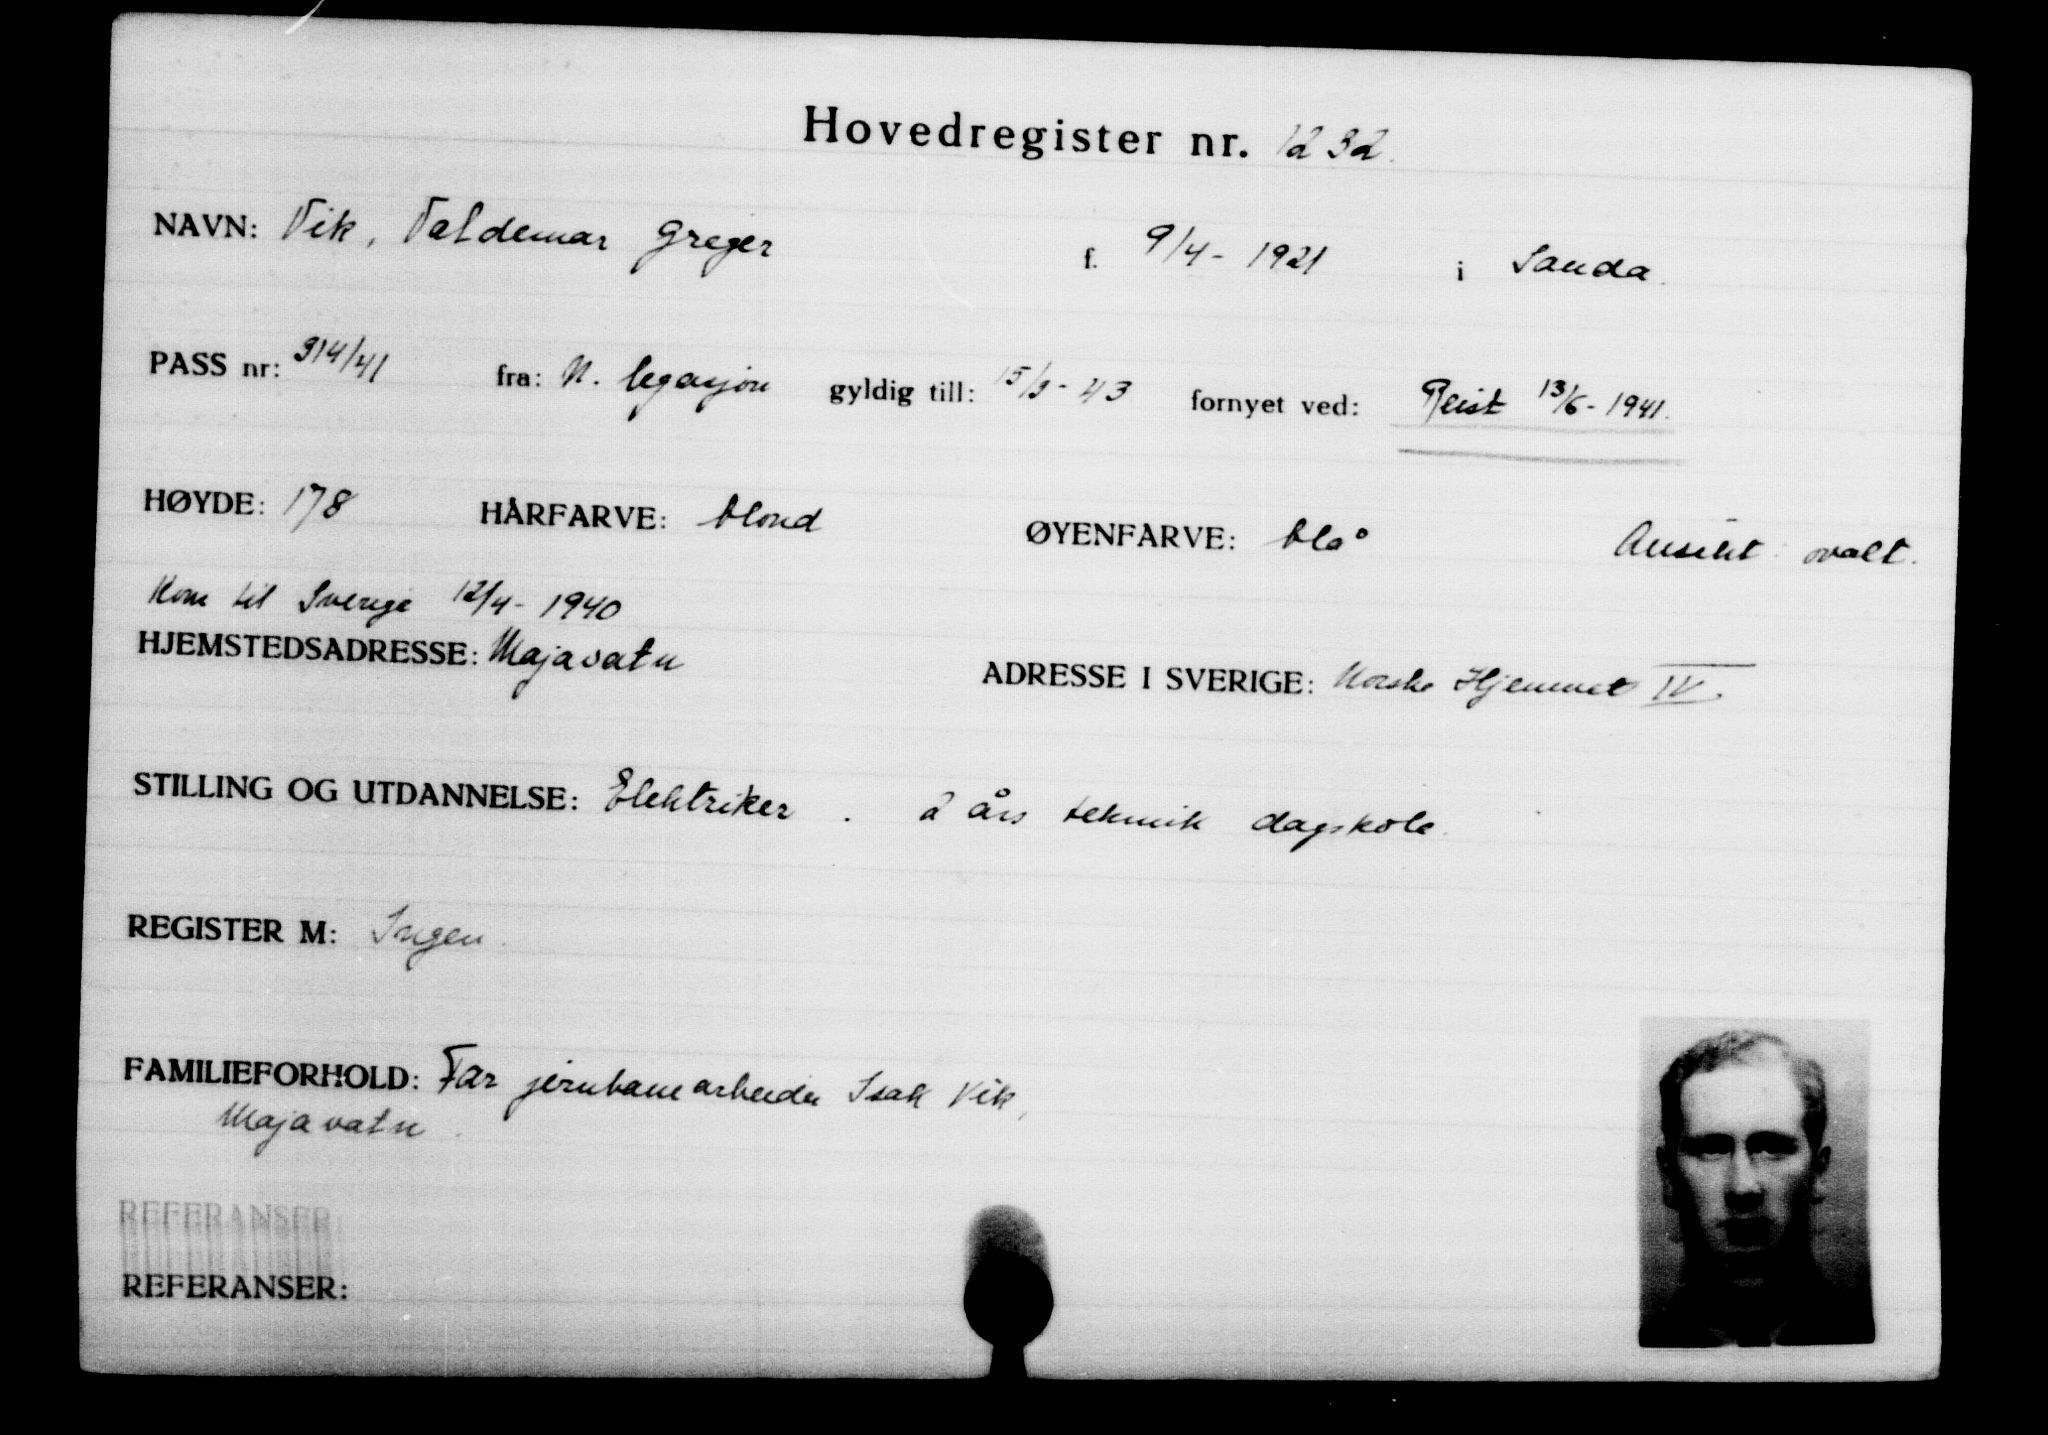 Hovedregister nr. 1232.
NAVN: Vik, Valdemar Greger f. 9/4 - 1921 i Sauda.
PASS nr: 314/41 fra: N. legasjon gyldig till: 15/3 - 43 fornyet ved: Reist 13/6 - 1941.
HØYDE: 178 HÅRFARVE: blond ØYENFARVE: blå Ansikt: ovalt.
Kom til Sverige 12/4 - 1940
HJEMSTEDSADRESSE: Majavatn ADRESSE I SVERIGE: Norske Hjemmet IV.
STILLING OG UTDANNELSE: Elektriker. 2 års teknik dagskole.
REGISTER M: Ingen.
FAMILIEFORHOLD: Far jernbanearbeider Isak Vik,
Majavatn.
REFERANSER
REFERANSER: